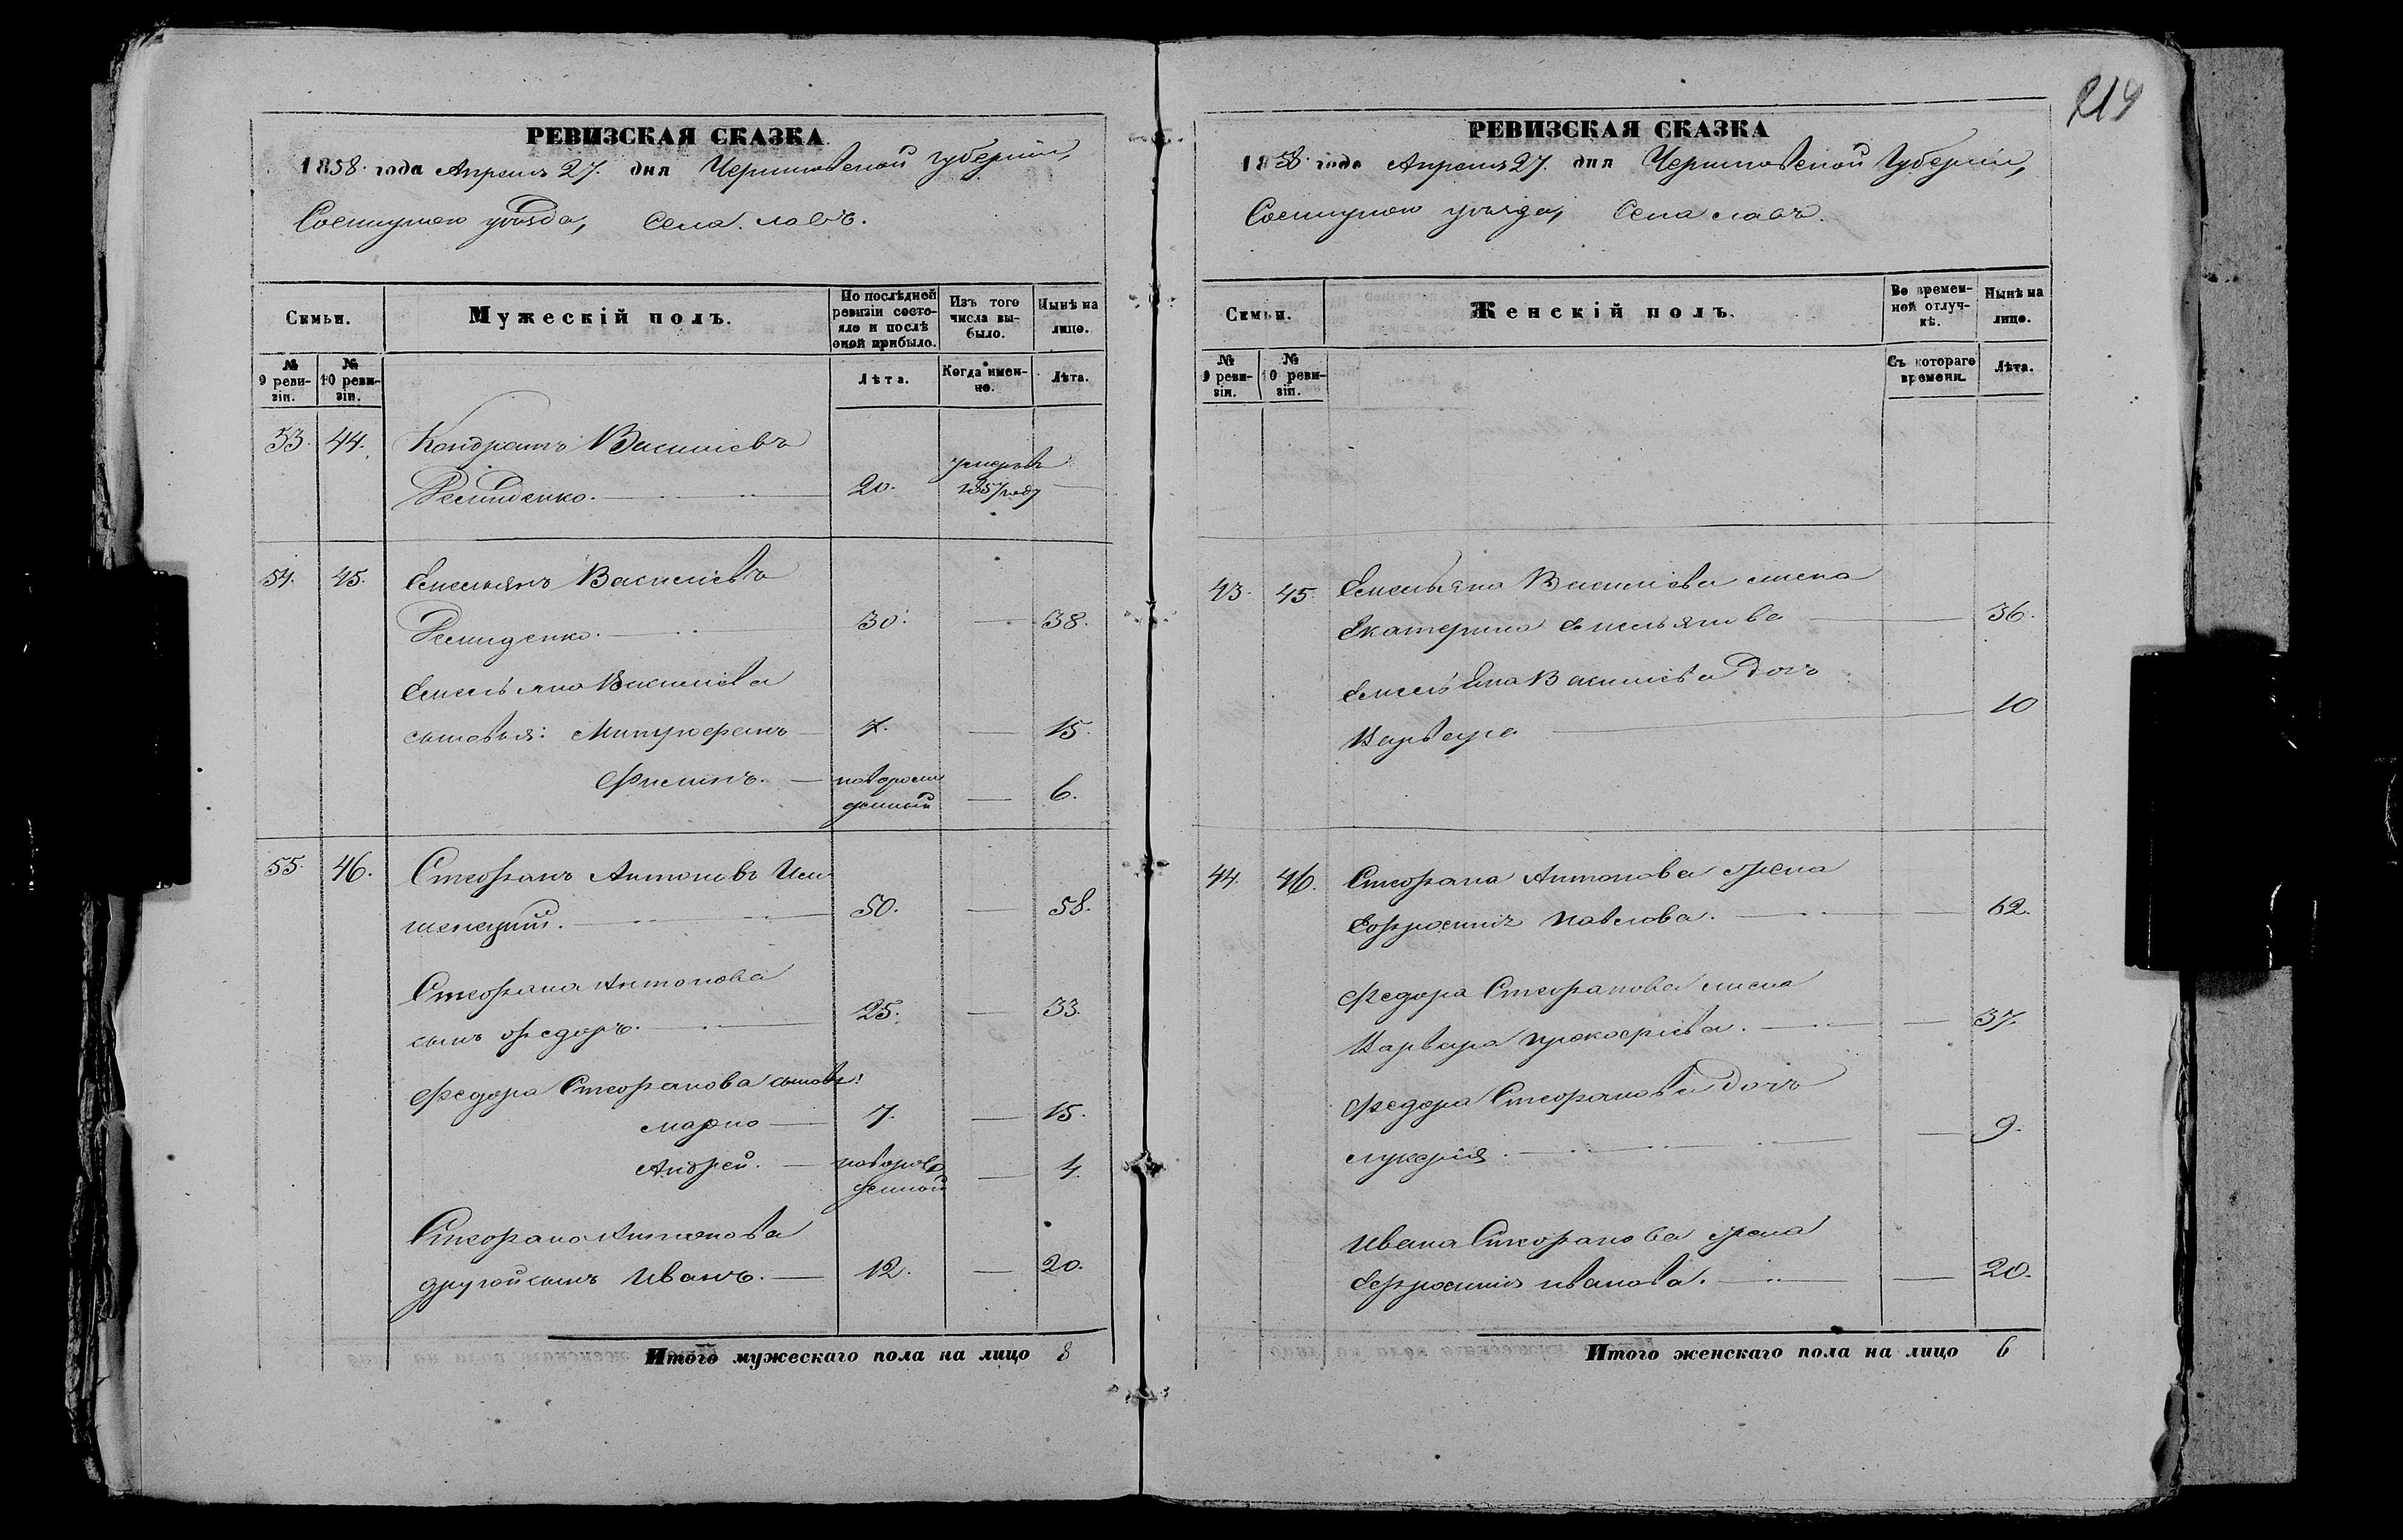 219
РЕВИЗСКАЯ СКАЗКА
1858. года Апреля 27. дня Черниговской Губернии,
Сосницкого уѣзда, Села Лавъ.
Семьи.
Мужескій полъ.
По послѣдней ревизіи состояло и послѣ оной прибыло.
Изъ того числа выбыло.
Нынѣ на лицо.
№ 9 ревизіи.
№ 10 ревизіи.
Лѣта.
Когда именно.
Лѣта.
53. 44. Кондратъ Василіевъ
Демиденко. 20. умеръ въ 1857 году
54. 45. Емельянъ Василіевъ
Демиденко. 30. 38.
Емельяна Василіева
сыновья: Митрофанъ 7. 15.
Филипъ. новорож
денный 6.
55. 46. Стефанъ Антоновъ
50. 58.
Стефана Антонова
сынъ Федоръ. 25. 33.
Федора Стефанова сыновья:
Марко 7. 15.
Андрей. новорож
денный 4.
Стефана Антонова
другой сынъ Иванъ. 12. 20.
Итого мужескаго пола на лицо 8
РЕВИЗСКАЯ СКАЗКА
1858. года Апреля 27. дня Черниговской Губернии,
Сосницкого уѣзда, Села Лавъ.
Семьи.
Женскій полъ.
Во временной отлучкѣ.
Нынѣ на лицо.
№ 9 ревизіи.
№ 10 ревизіи.
Съ котораго времени.
Лѣта.
43. 45. Емельяна Василіева жена
Екатерина Емельянова 36.
Емельяна Василіева дочь
Варвара 10
44. 46. Стефана Антонова жена
Евфросинія Павлова. 62.
Федора Стефанова жена
Варвара Прокофіева. 37.
Федора Стефанова дочь
Лукерія. 9.
Ивана Стефанова жена
Евфросинія Иванова. 20.
Итого женскаго пола на лицо 6